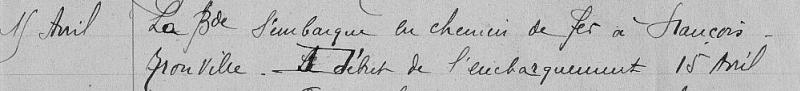 15 Avril La Bde s'embarque en chemin de fer à François-
Tronville. - Le début de l'embarquement 15 Avril